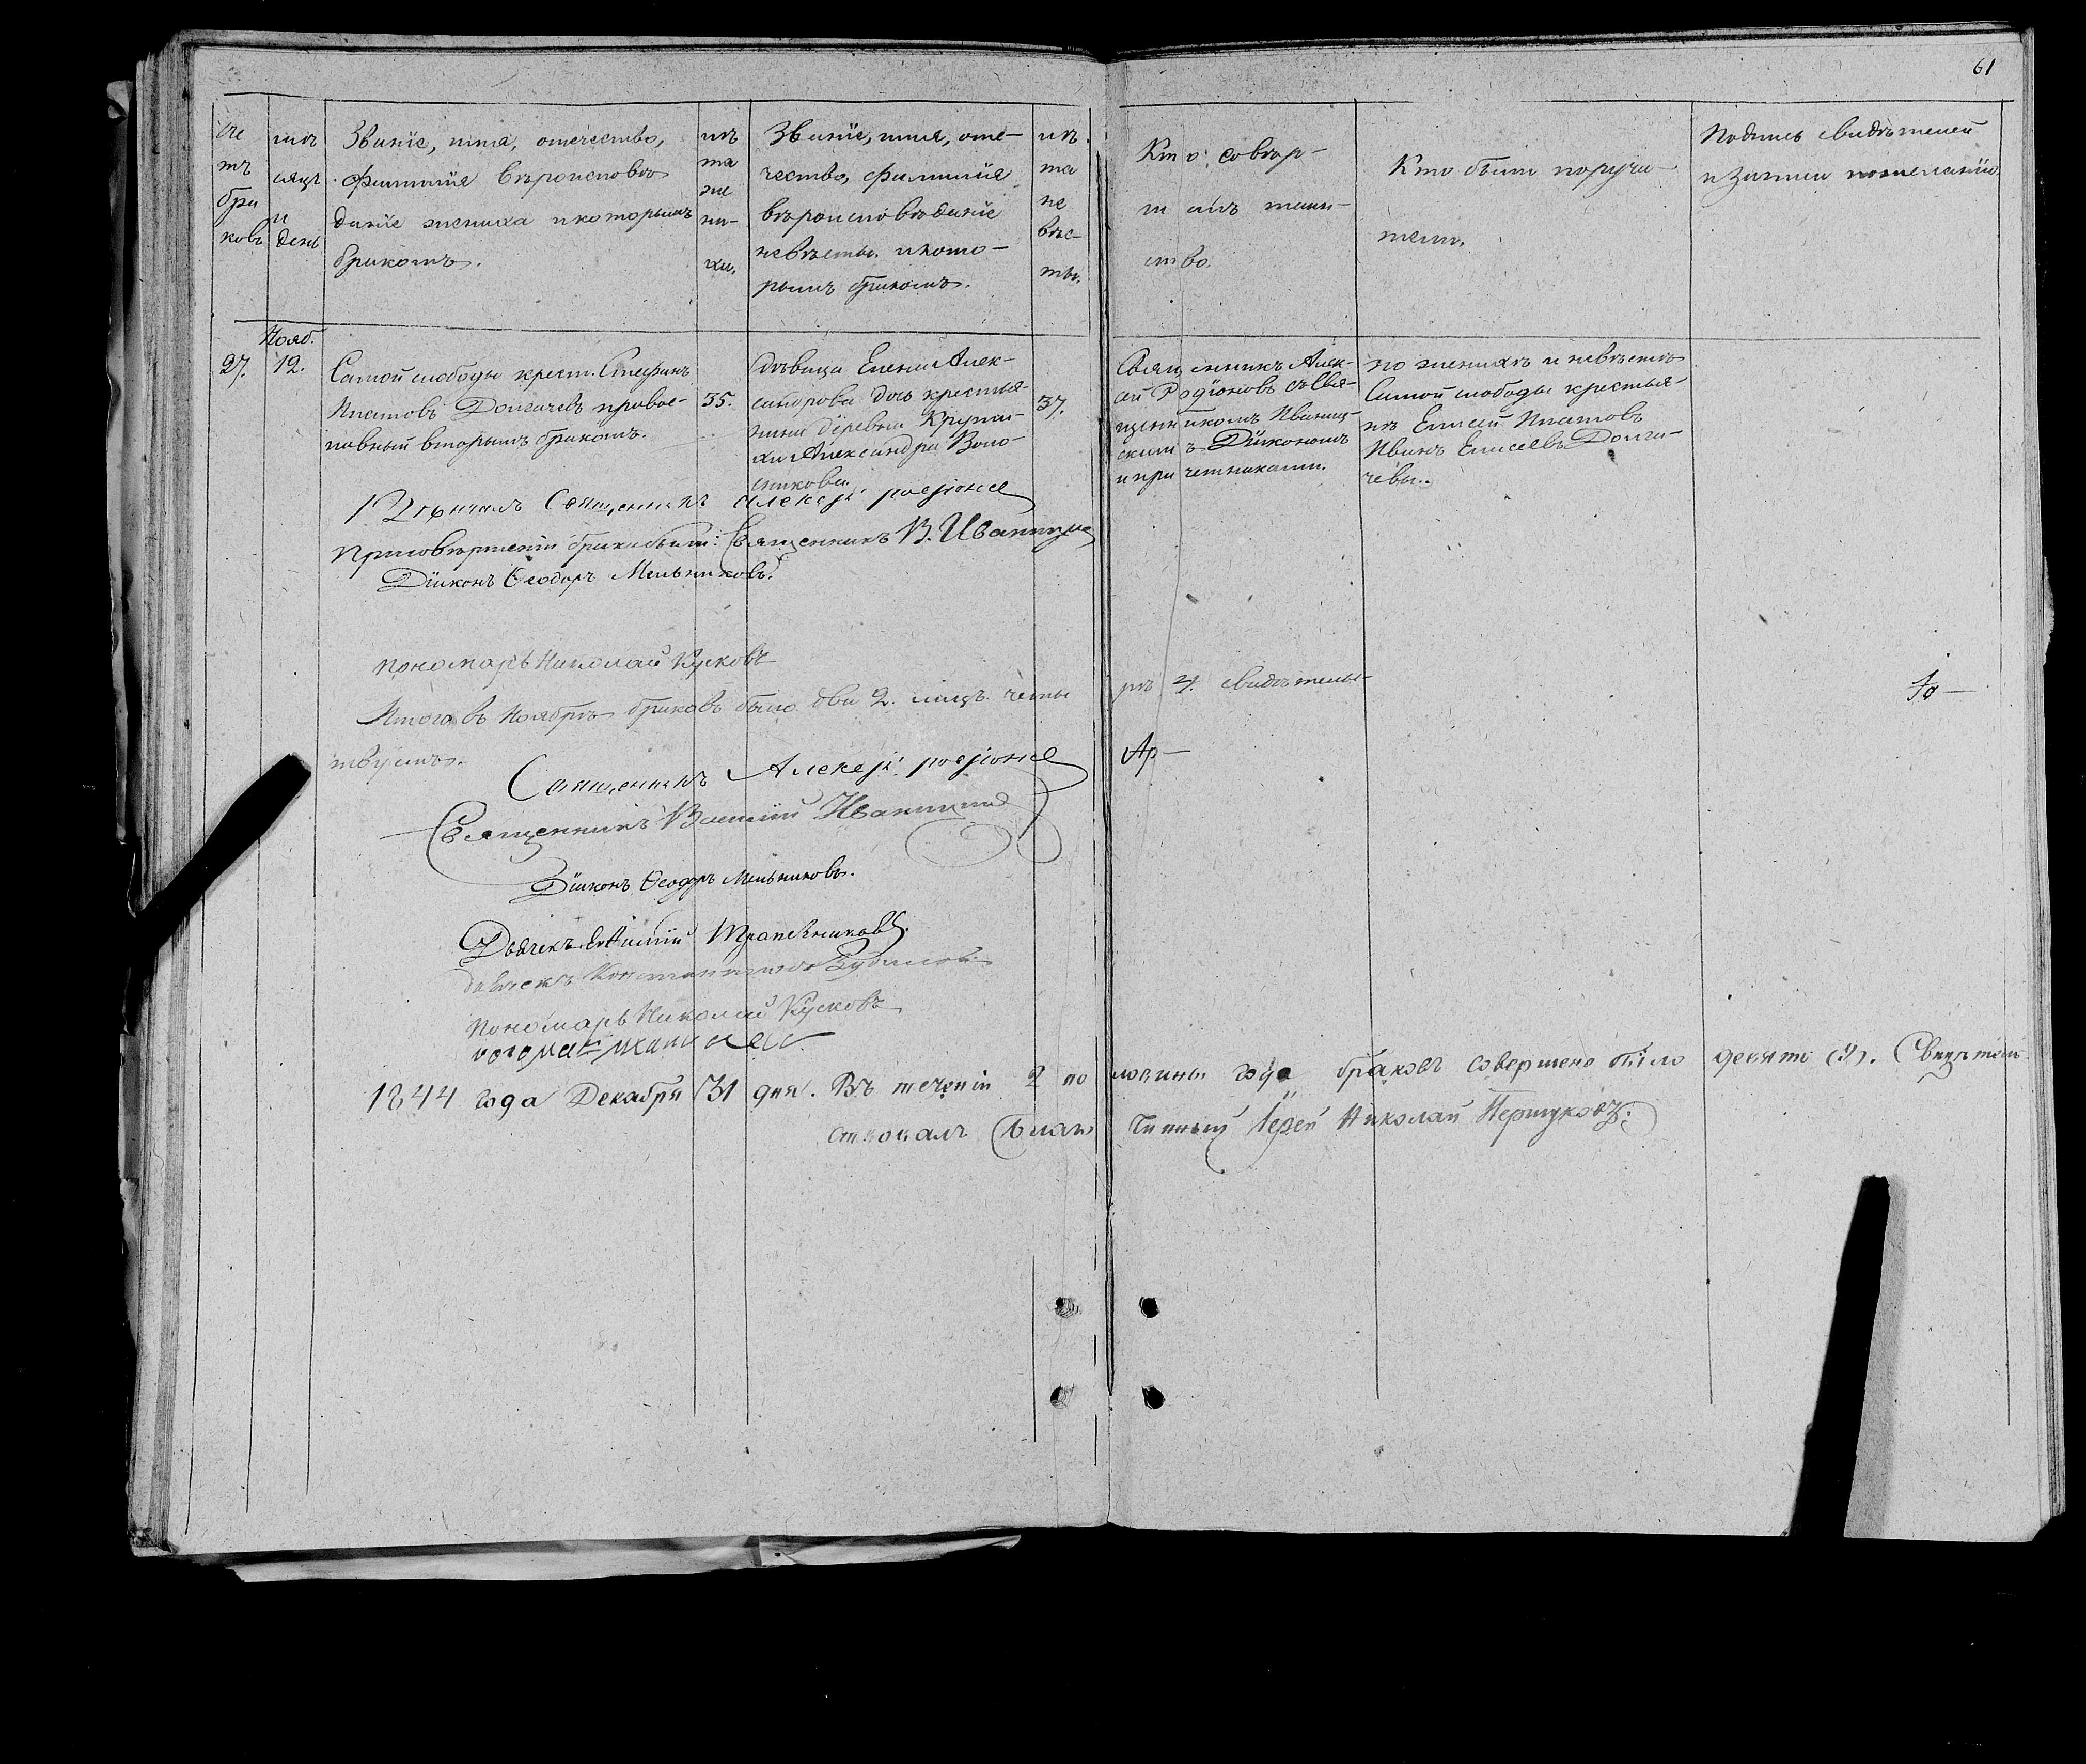 61
Сче
тъ
бра
ковъ
мѣ
сяцъ
и
день
Званіе, имя, отечество,
фамилія вѣроисповѣ
даніе жениха и которымъ
бракомъ.
лѣ
та
же
ни-
ха.
Званіе, имя, оте-
чество, фамилія
вѣроисповѣданіе
невѣсты. и кото-
рымъ бракомъ.
лѣ
та
не
вѣс-
ты.
Кто совер-
шалъ таин-
ство.
Кто были поручи-
тели.
Подпись свидѣтелей
и записи по желанію
27.
Нояб.
12.
Самой слободы крест. Стефанъ
Ипатовъ Долгачевъ правос-
лавный вторымъ бракомъ.
35.
дѣвица Елена Алек-
сандрова дочь крестья-
нина деревни
Александра
37.
Священникъ Алек-
ѣй Родіоновъ съ Свя-
щенникомъ Иваниц-
скимъ Діакономъ
и причетниками.
по женихѣ и невѣстѣ
Самой слободы крестья-
не Елисей Ипатовъ
Иванъ Елисеевъ Долга-
чевы.
Вѣнчалъ Священникъ Алексѣй Родіонов
При совершеніи брака были: Священникъ В. Иваницкій
Діаконъ Ѳеодоръ Мельниковъ.
пономарь Николай Кусковъ
Итого въ Ноябрѣ браковъ было два 2. лицъ четы
ре 4. свидѣтельс-
твуемъ.
Священникъ Алексѣй Родіонов
Священникъ Василій Иваницкій
Діаконъ Ѳеодоръ Мельниковъ.
Дьячекъ Трапезниковъ.
дьячекъ Константинъ
пономарь Николай Кусковъ
1844 года Декабря 31 дня. Въ теченіи 2 по ловины года браковъ совершено было девять (9). Свидѣтель
ствовалъ Благо чинный Іерей Николай Першуковъ.